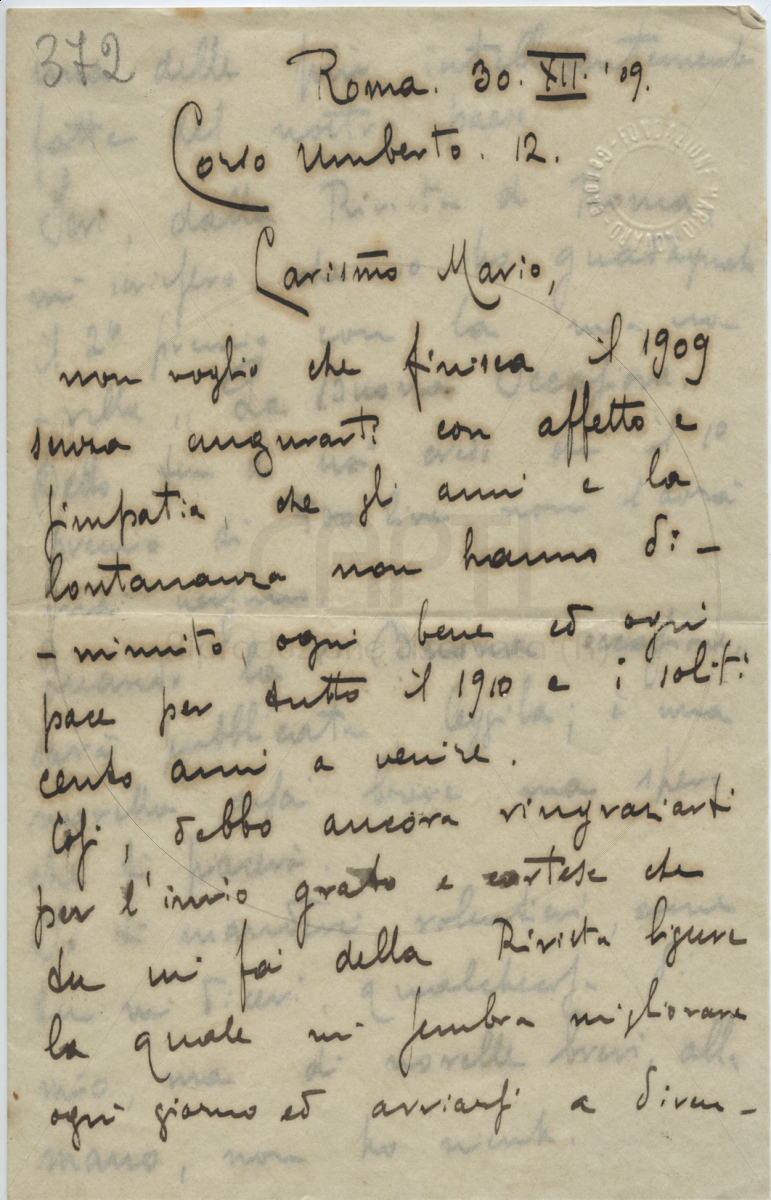 372
Roma. 30. XII. '09.
Corso Umberto. 12.
FONDAZIONE MARIO NOVARO
Carissmo Mario,
non voglio che finisca il 1909
senza augurarti con affetto e
simpatia, che gli anni e la
lontananza non hanno di-
-minuito, ogni bene ed ogni
pace per tutto il 1910 e i soliti
cento anni a venire.
Così, debbo ancora ringraziarti
per l'invio grato e cortese che
tu mi fai della Rivista ligure
la quale mi sembra migliorare
ogni giorno ed avviarsi a diven-